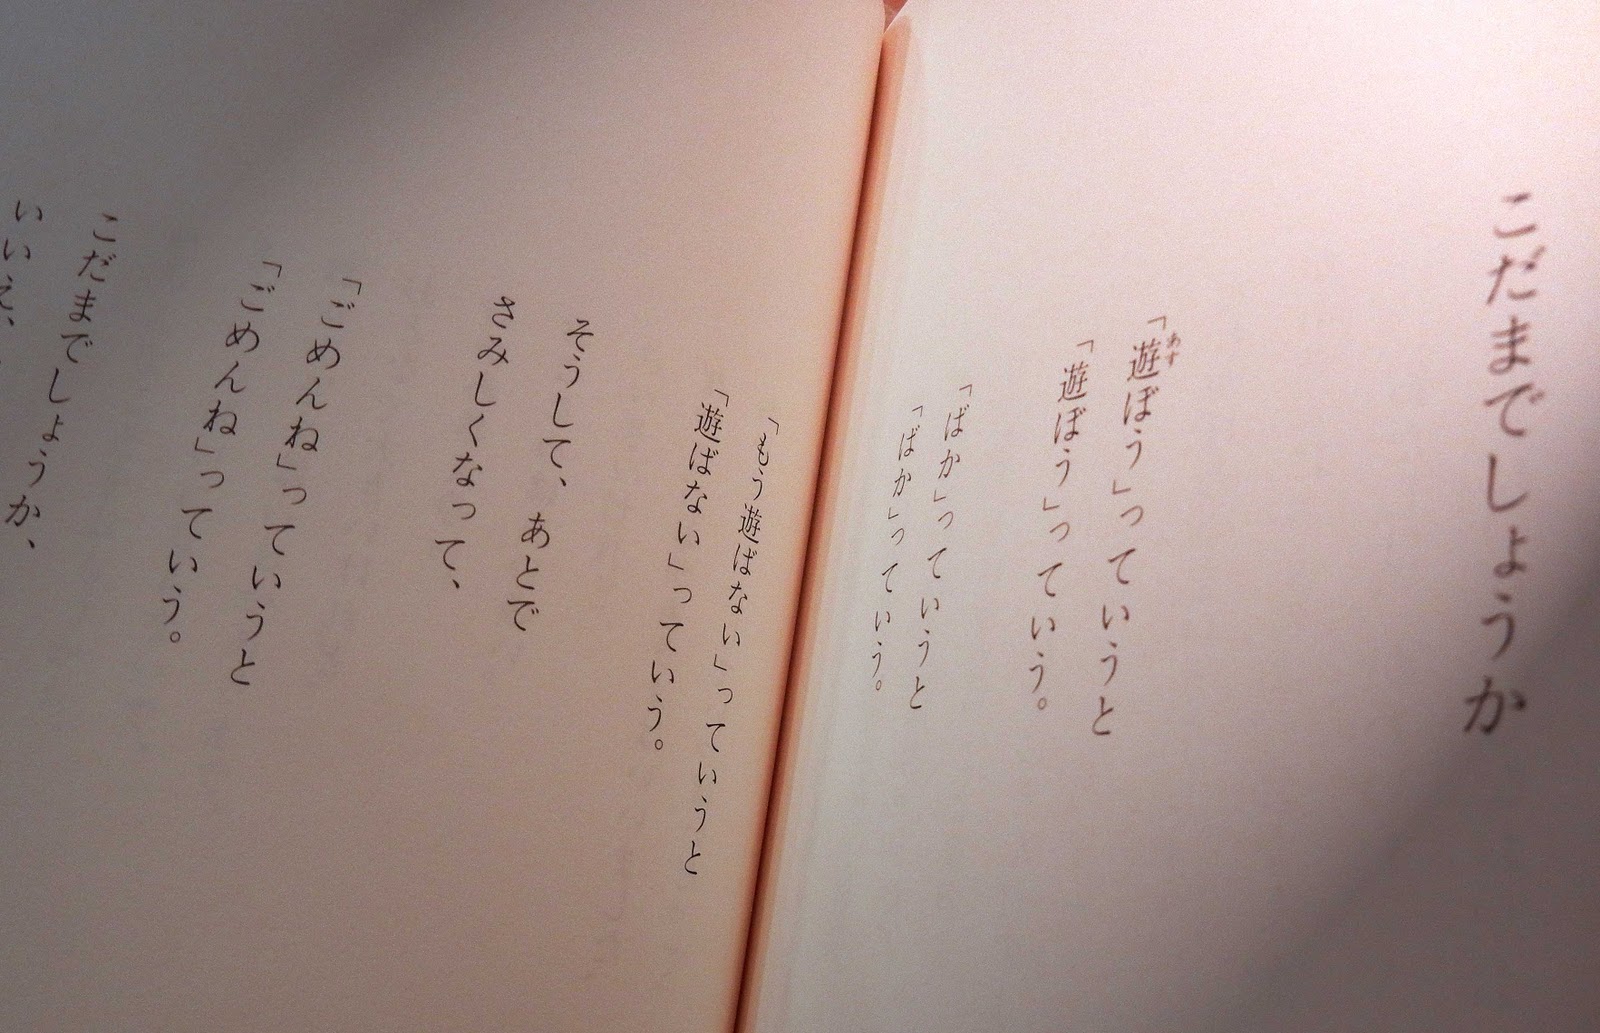 こだまでしょうか
「遊ぼう」っていうと
「遊ぼう」っていう。
「ばか」っていうと
「ばか」っていう。
「もう遊ばない」っていうと
「遊ばない」っていう。
そうして、あとで
さみしくなって、
「ごめんね」っていうと
「ごめんね」っていう。
こだまでしょうか、
いいえ、